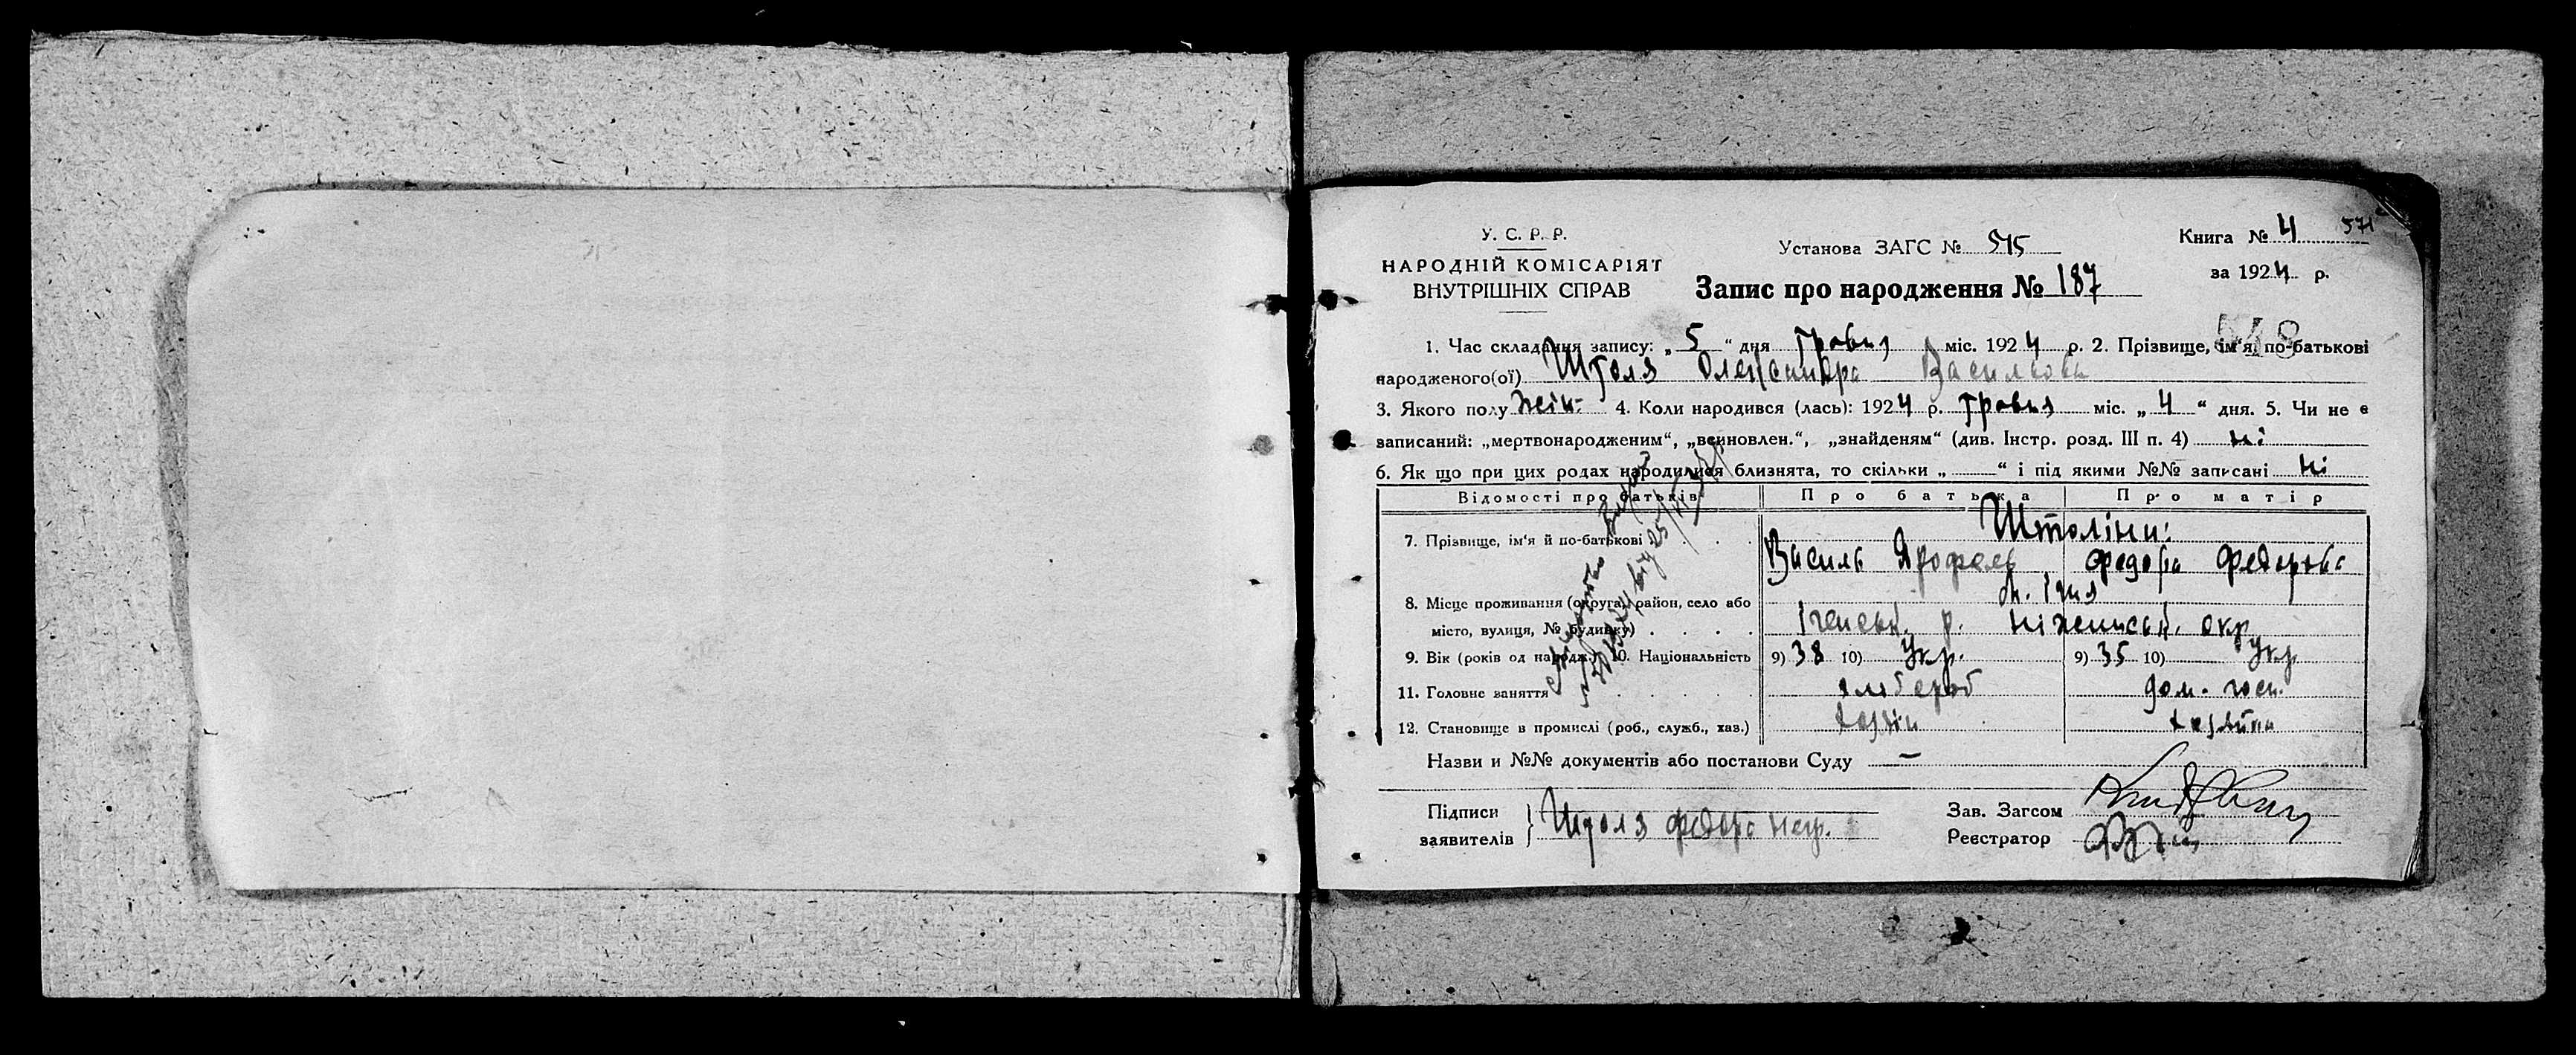 У. С. Р. Р.
НАРОДНІЙ КОМІСАРІЯТ
ВНУТРІШНІХ СПРАВ
Установа ЗАГС № 515
Запис про народження № 187
Книга № 4 571
за 1924 р.
548
1. Час складання запису: „ 5 “ дня Травня міс. 1924 р. 2. Прізвище, ім'я, по-батькові
народженого(ої) Штоля Олександра Василівна
3. Якого полу жін. 4. Коли народився (лась): 1924 р. Травня міс. „ 4 “ дня. 5. Чи не є
записаний: „мертвонародженим“, „всиновлен.“, „знайденям“ (див. Інстр. розд. III п. 4) ні
6. Як що при цих родах народилися близнята, то скільки „ “ і під якими №№ записані ні
Відомості про батьків Про батька Про матір
Штоліни:
7. Прізвище, ім'я й по-батькові Василь Ярофеєв Федора Федоровна
м. Ічня
8. Місце проживання (округа, район, село або
місто, вулиця, № будинку) Іченськ. р. Ніженськ. окр.
9. Вік (років од народж.) 10. Національність 9) 38 10) Укр. 9) 35 10) Укр.
11. Головне заняття хлібероб дом. госп.
12. Становище в промислі (роб., служб., хаз.) хазяїн хазяйка
Назви и №№ документів або постанови Суду —
Підписи
заявителів Штоля Федора
Зав. Загсом
Реєстратор